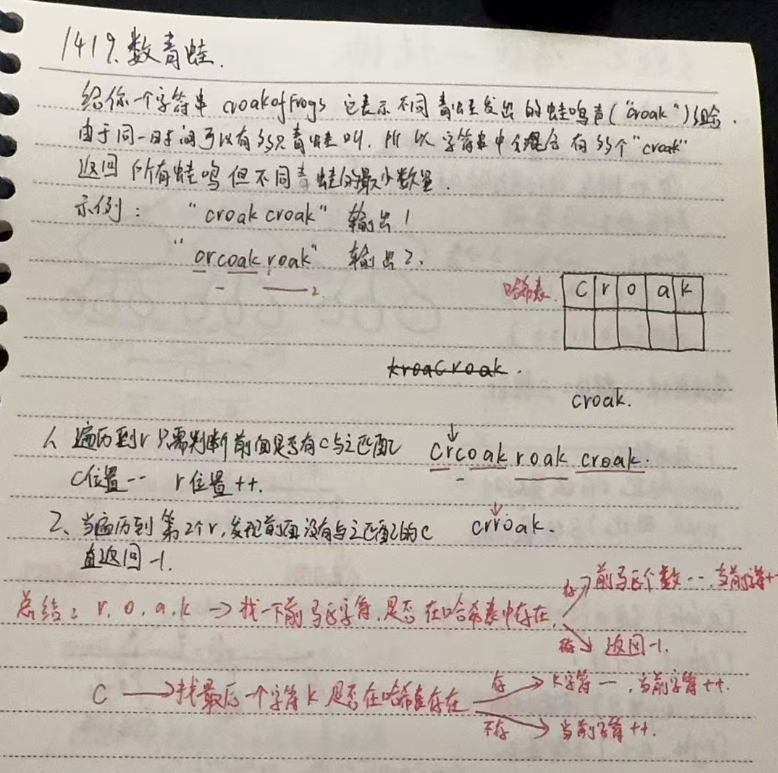 1419. 数青蛙.
给你一个字符串 croakoffrogs 它表示不同青蛙发出的蛙鸣声("croak")组合.
由于同一时间可以有多只青蛙叫. 所以字符串中会混合有多个"croak"
返回所有蛙鸣但不同青蛙的最少数量.
示例: "croak croak" 输出 1
"crcoak roak" 输出 2.
2
哈希表 c r o a k
croak.
1、遍历到 r 只需判断前面是否有 c 与之匹配 crcoak roak croak.
c位置-- r位置++.
2、当遍历到第2个r, 发现前面没有与之匹配的c crroak.
直返回 -1.
存 前驱个数--, 当前字符++
总结: r, o, a, k → 找一下前驱字符, 是否在哈希表中存在,
返回-1.
存 k字符--, 当前字符++.
c → 找最后一个字符 k 是否在哈希表存在
不存 当前字符++.